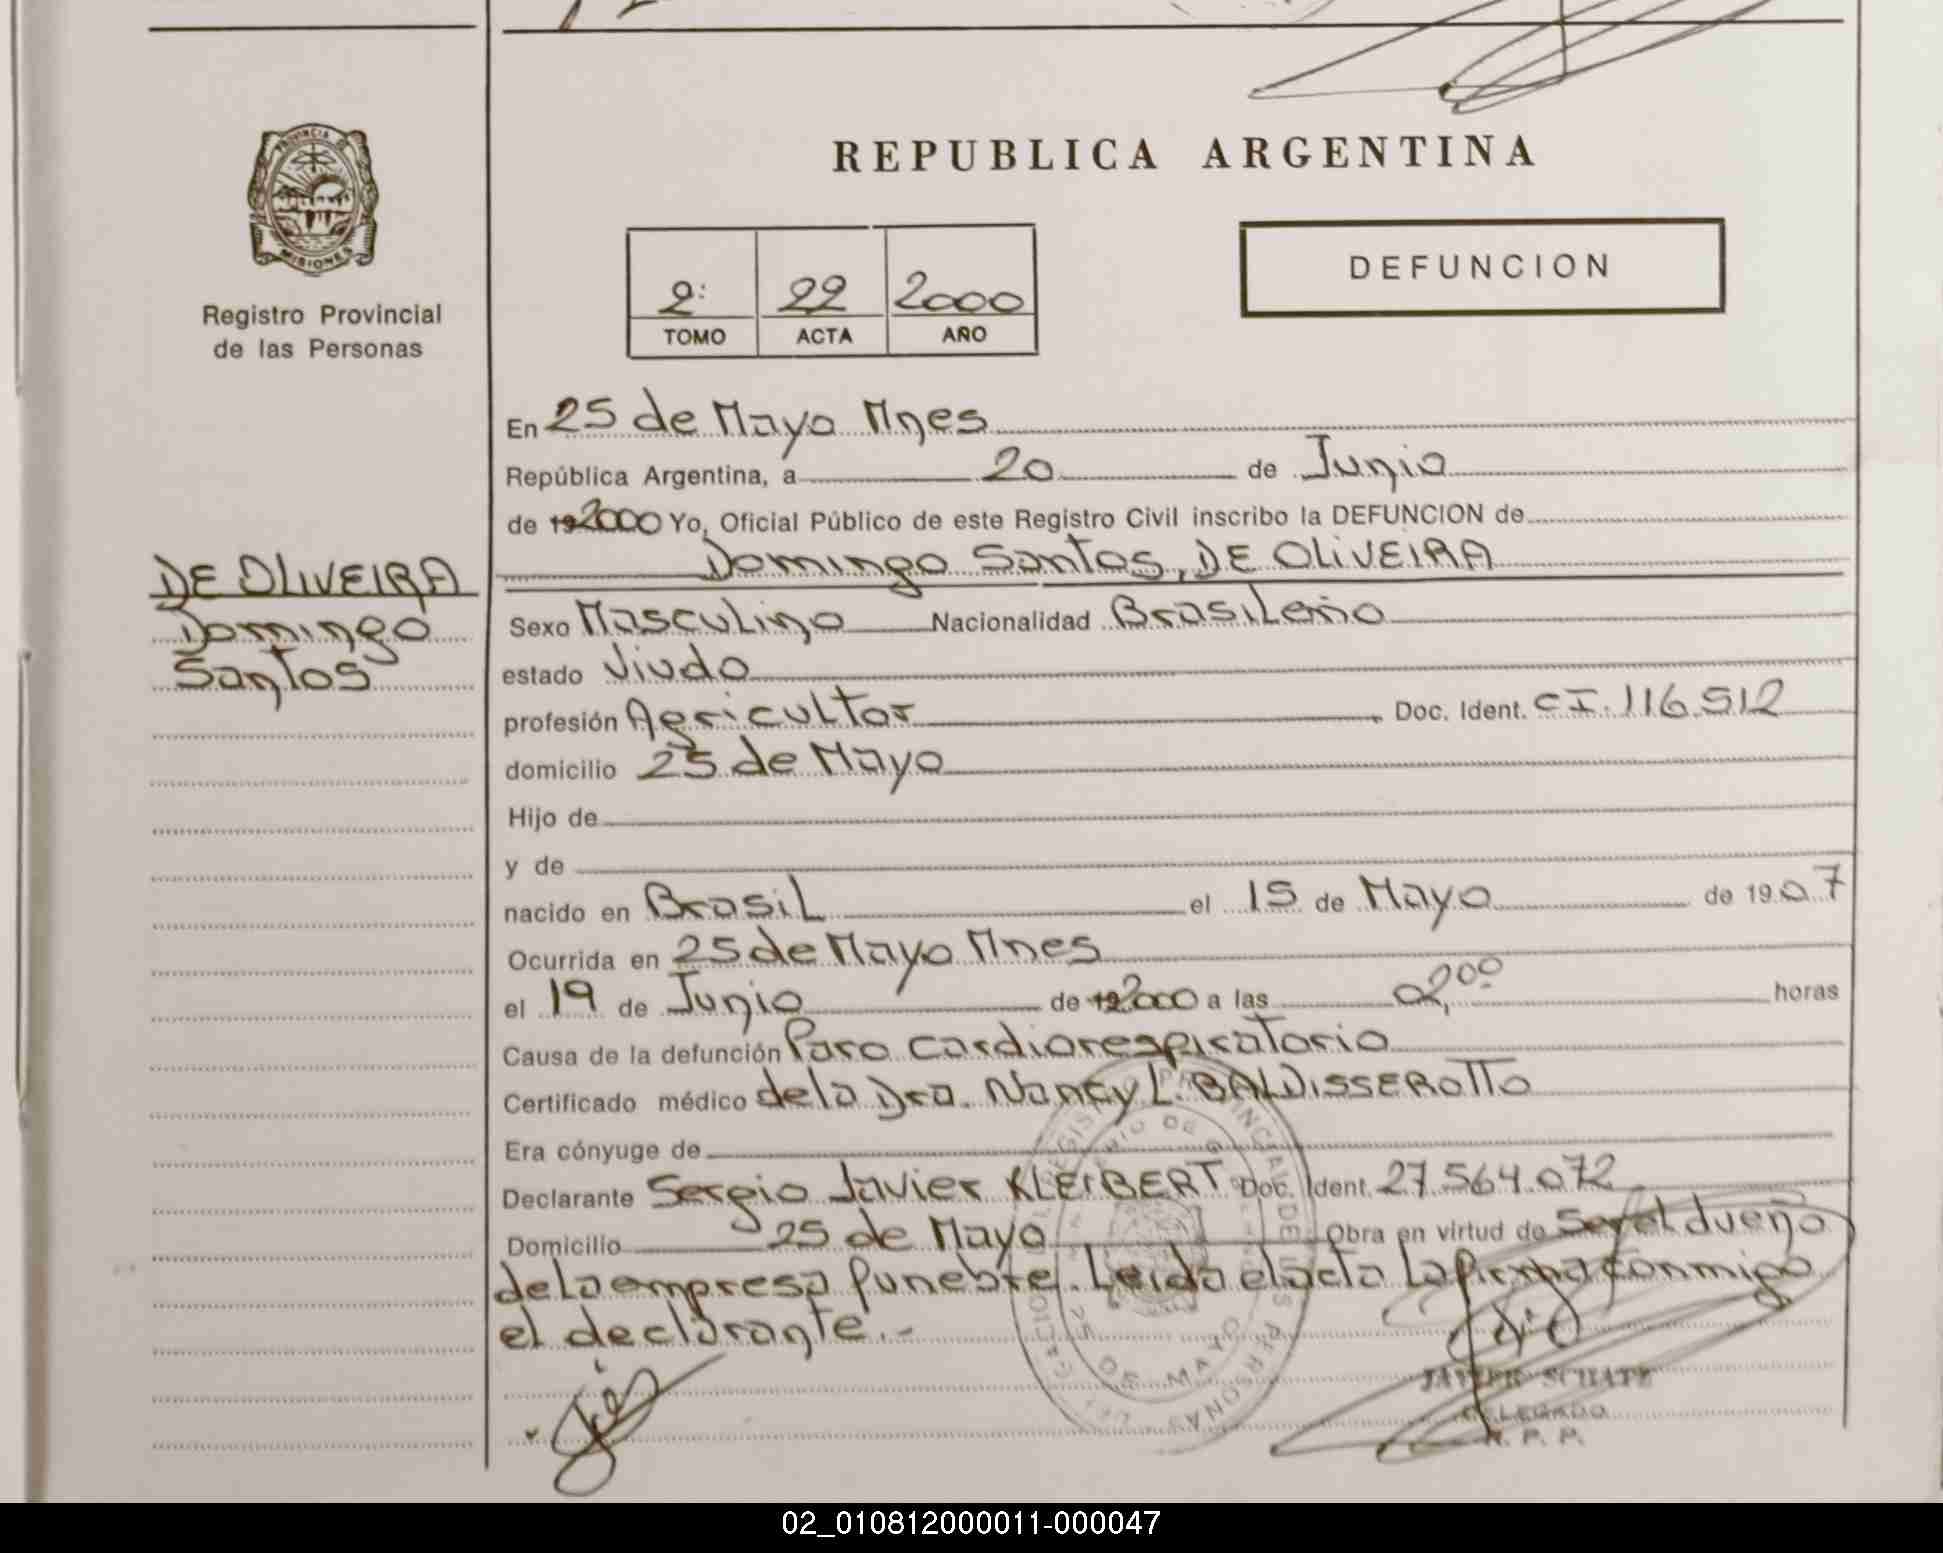 PROVINCIA DE
MISIONES
Registro Provincial
de las Personas
DE OLIVEIRA
Domingo
Santos
REPUBLICA ARGENTINA
2: 22 2000
TOMO ACTA AÑO
DEFUNCION
En 25 de Mayo Mnes
República Argentina, a 20 de Junio
de 192000 Yo, Oficial Público de este Registro Civil inscribo la DEFUNCION de
Domingo Santos, DE OLIVEIRA
Sexo Masculino Nacionalidad Brasileño
estado Viudo
profesión Agricultor Doc. Ident. CI. 116.512
domicilio 25 de Mayo
Hijo de
y de
nacido en Brasil el 15 de Mayo de 1907
Ocurrida en 25 de Mayo Mnes
el 19 de Junio de 192000 a las 02,00 horas
Causa de la defunción Paro cardiorespiratorio
Certificado médico de la Dra. Nancy L. BALDISSEROTTO
Era cónyuge de
Declarante Sergio Javier KLEIBERT Doc. Ident. 27.564.072
Domicilio 25 de Mayo Obra en virtud de Ser el dueño
de la empresa funebre. Leida el acta la firma conmigo
el declarante.-
25 DE MAYO
JAVIER SCHATZ
DELEGADO
R. P. P.
02_010812000011-000047